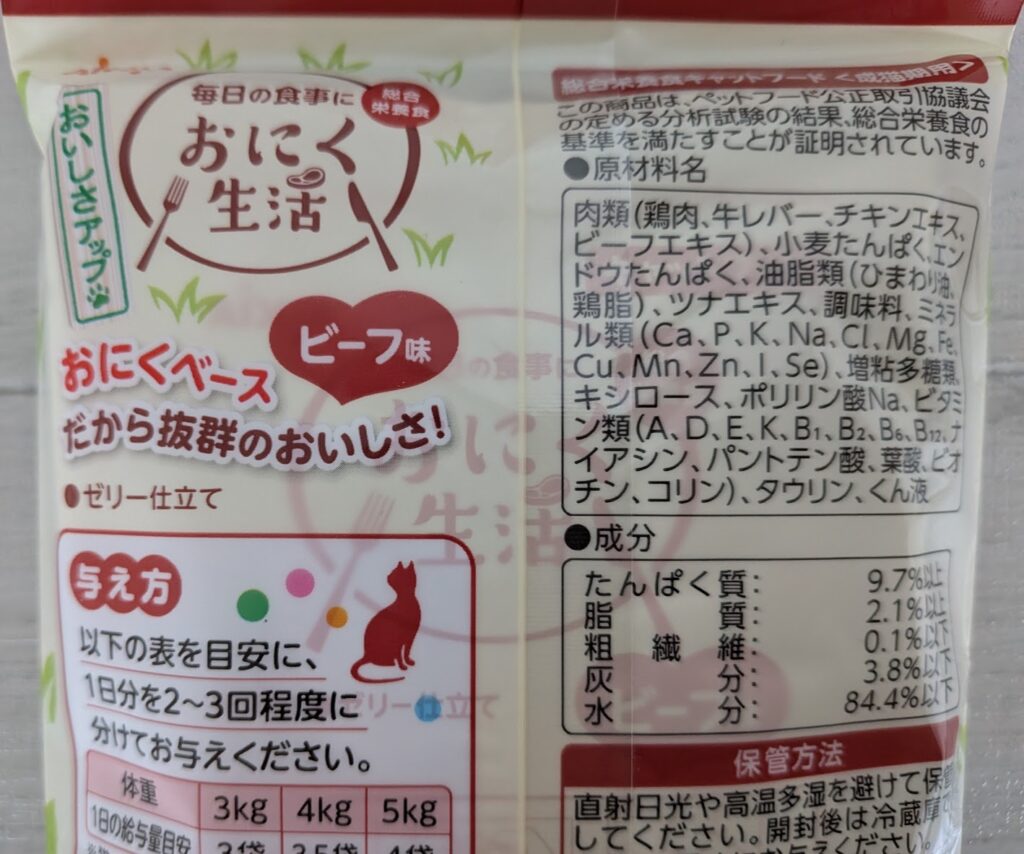 おいしさアップ
毎日の食事に
総合
栄養食
おにく
生活
ビーフ味
おにくベース
だから抜群のおいしさ!
●ゼリー仕立て
与え方
以下の表を目安に、
1日分を2〜3回程度に
分けてお与えください。
体重 3kg 4kg 5kg
1日の給与量目安 3袋 3.5袋 4袋
総合栄養食キャットフード〈成猫期用〉
この商品は、ペットフード公正取引協議会
の定める分析試験の結果、総合栄養食の
基準を満たすことが証明されています。
●原材料名
肉類(鶏肉、牛レバー、チキンエキス、
ビーフエキス)、小麦たんぱく、エン
ドウたんぱく、油脂類(ひまわり油、
鶏脂)、ツナエキス、調味料、ミネラ
ル類(Ca、P、K、Na、Cl、Mg、Fe、
Cu、Mn、Zn、I、Se)、増粘多糖類、
キシロース、ポリリン酸Na、ビタミ
ン類(A、D、E、K、B₁、B₂、B₆、B₁₂、ナ
イアシン、パントテン酸、葉酸、ビオ
チン、コリン)、タウリン、くん液
●成分
たんぱく質: 9.7%以上
脂質: 2.1%以上
粗繊維: 0.1%以下
灰分: 3.8%以下
水分: 84.4%以下
保管方法
直射日光や高温多湿を避けて保管
してください。開封後は冷蔵庫で
お与えください。